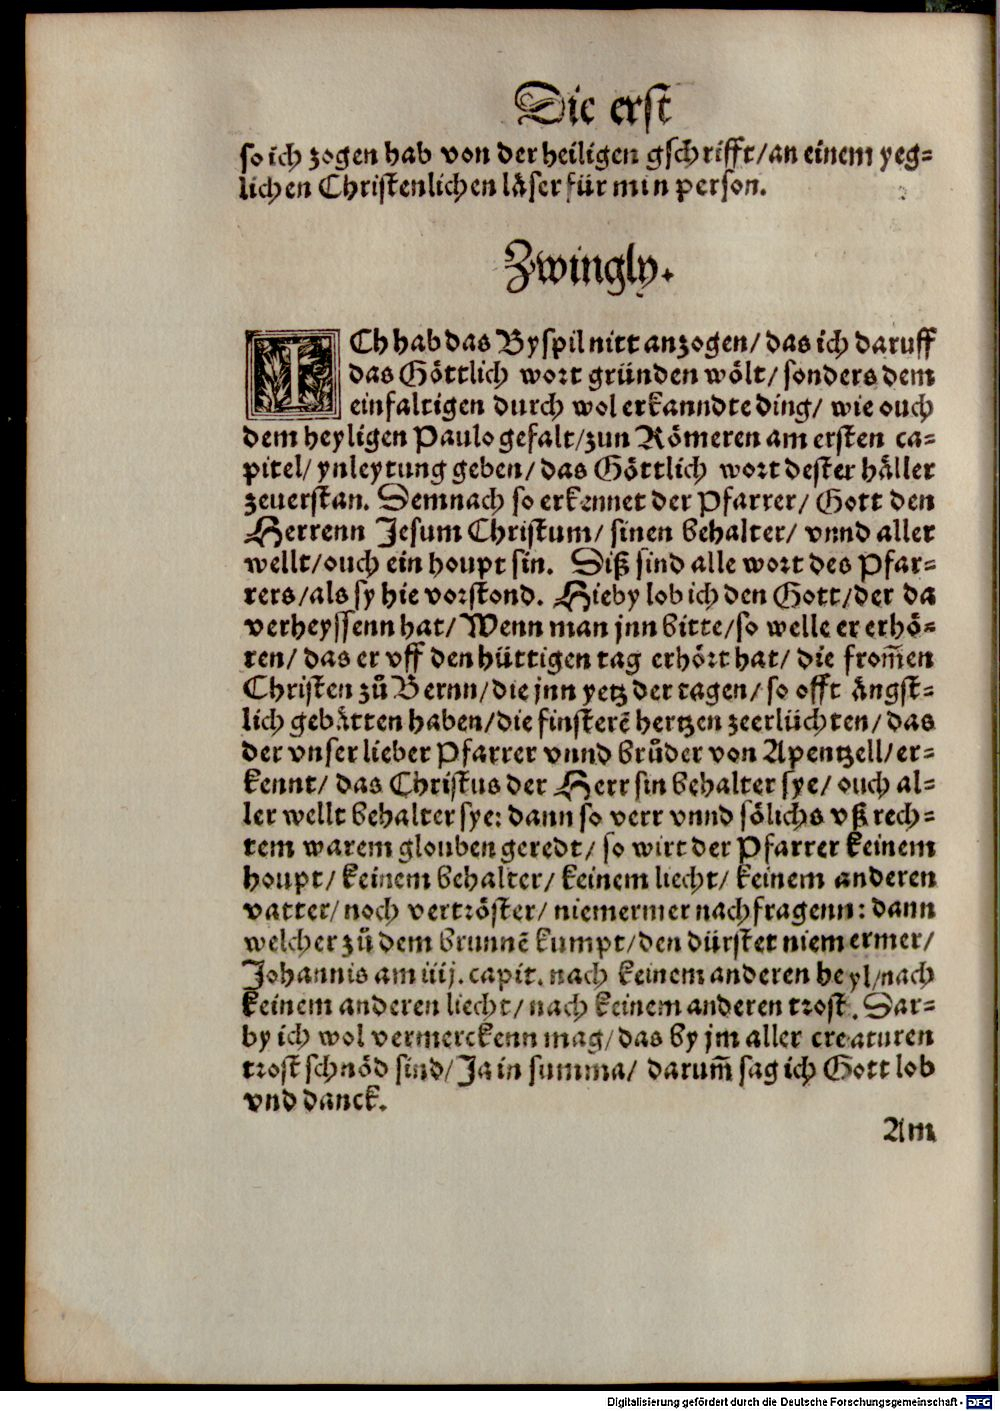 Die erst
so ich zogen hab von der heiligen gschrifft/an einem yeg=
lichen Christenlichen läser für min person.
Zwingly.
ICh hab das Byspil nitt anzogen/ das ich daruff
das Göttlich wort gründen wölt/ sonders dem
einfaltigen durch wol erkanndte ding/ wie ouch
dem heyligen Paulo gefalt/zun Römeren am ersten ca=
pitel/ ynleytung geben/das Göttlich wort dester häller
zeuerstan. Demnach so erkennet der Pfarrer/ Gott den
Herrenn Jesum Christum/ sinen behalter/ vnnd aller
wellt/ouch ein houpt sin. Diß sind alle wort des Pfar=
rers/als sy hie vorstond. Hieby lob ich den Gott/der da
verheyssenn hat/ Wenn man jnn bitte/so welle er erhö=
ren/ das er vff den hüttigen tag erhört hat/ die from̄en
Christen zů Bernn/die jnn yetz der tagen/so offt ängst=
lich gebätten haben/die finsterē hertzen zeerlüchten/das
der vnser lieber Pfarrer vnnd brůder von Apentzell/er=
kennt/ das Christus der Herr sin behalter sye/ ouch al=
ler wellt behalter sye: dann so verr vnnd sölichs vß rech=
tem warem glouben geredt/ so wirt der Pfarrer keinem
houpt/ keinem behalter/ keinem liecht/ keinem anderen
vatter/ noch vertröster/ niemermer nachfragenn: dann
welcher zů dem brunnē kumpt/den dürstet niemermer/
Johannis am iiij. capit. nach keinem anderen heyl/nach
keinem anderen liecht/ nach keinem anderen trost. Dar=
by ich wol vermerckenn mag/das by jm aller creaturen
trost schnöd sind/ Ja in summa/ darum̄ sag ich Gott lob
vnd danck.
Am
Digitalisierung gefördert durch die Deutsche Forschungsgemeinschaft - DFG